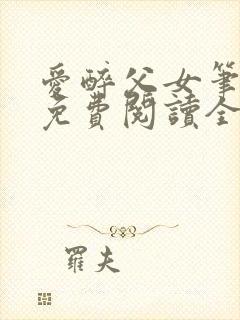 愛醉父女筆
免費閱讀全
羅夫